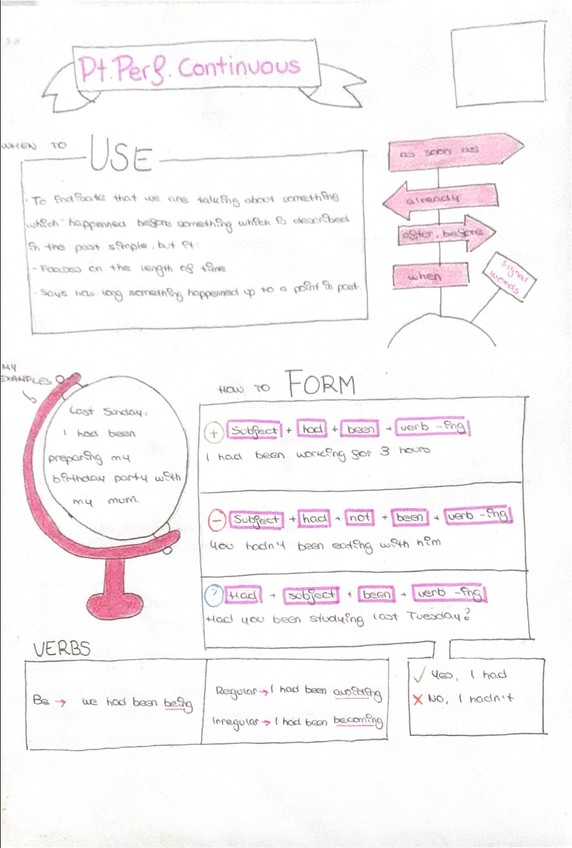 Pt. Perf. Continuous
WHEN TO USE
· To indicate that we are talking about something
which happenned before something which is described
in the past simple, but it:
- Focuses on the length of time
· Says how long something happenned up to a point in past
as soon as
already
after, before
when
signal
words
MY
EXAMPLES
Last Sunday,
I had been
preparing my
birthday party with
my mum
HOW TO FORM
+ Subject + had + been + verb -ing
I had been working for 3 hours
- Subject + had + not + been + verb -ing
You hadn't been eating with him
? Had + subject + been + verb -ing
Had you been studying last Tuesday?
✓ Yes, I had
X No, I hadn't
VERBS
Be → we had been being
Regular → I had been
Irregular → I had been becoming